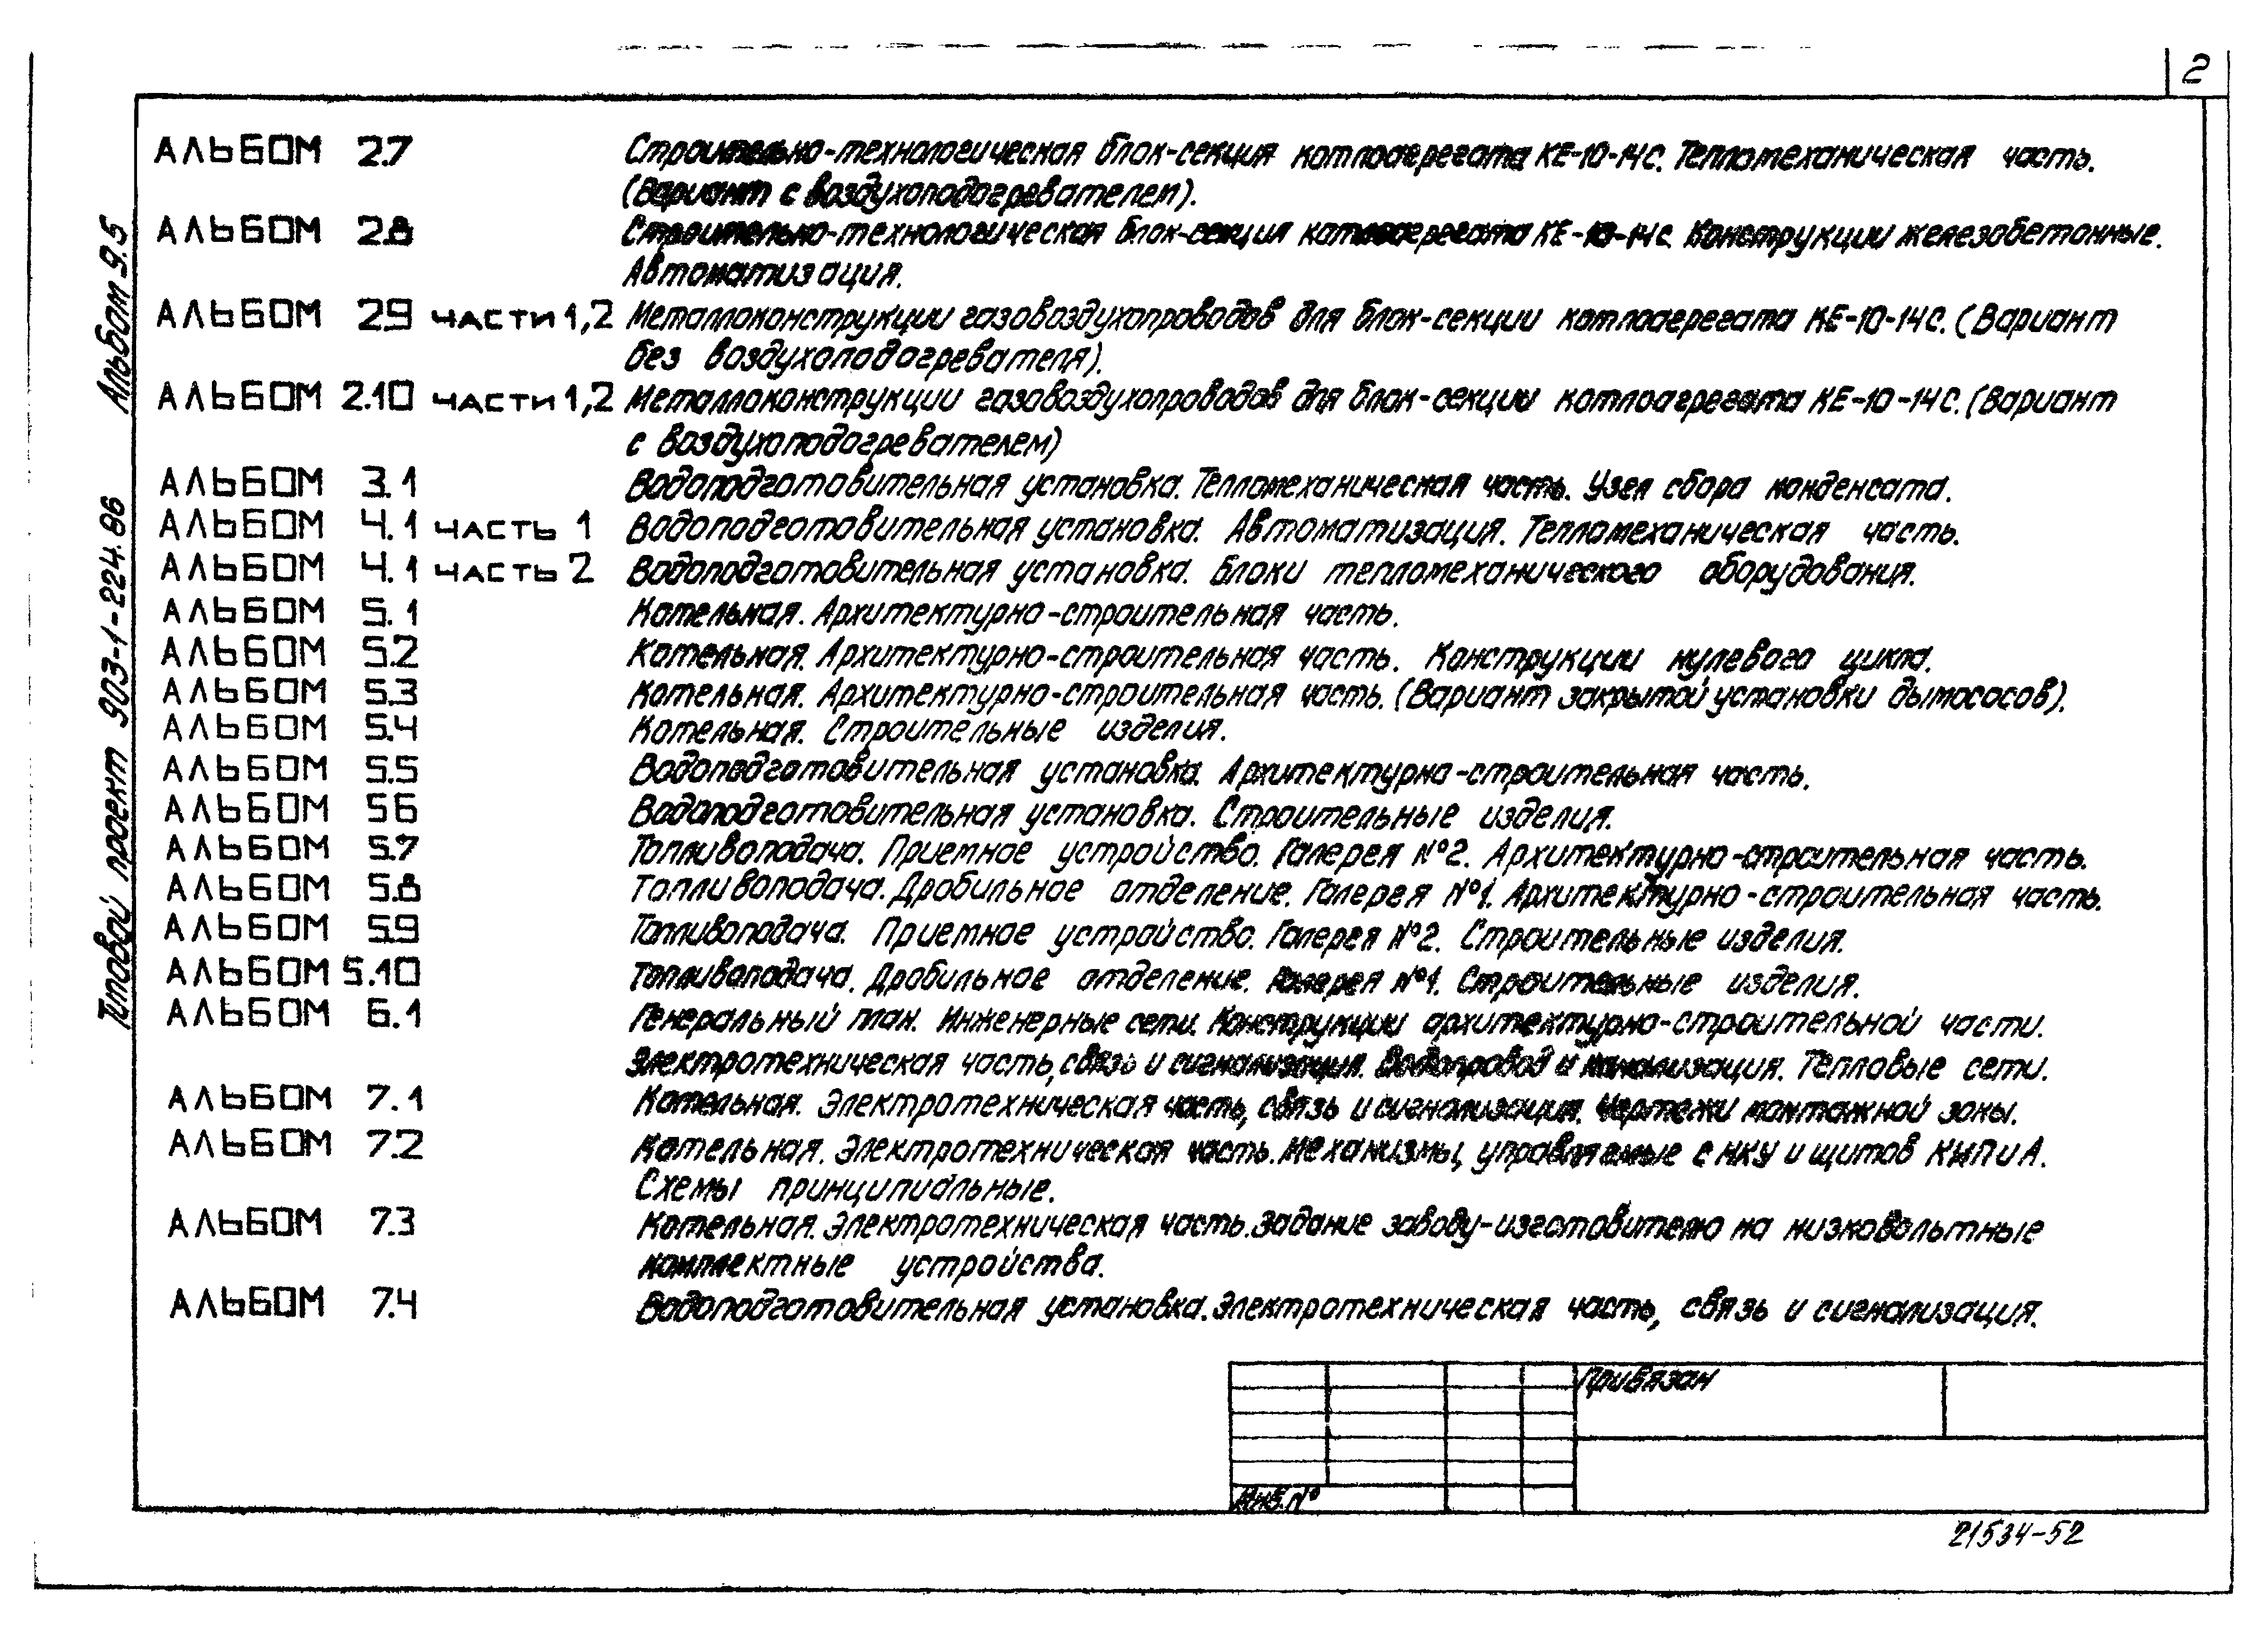 2
АЛЬБОМ 2.7 Строительно-технологическая блок-секция котлоагрегата КЕ-10-14С. Тепломеханическая часть.
(Вариант с воздухоподогревателем).
АЛЬБОМ 2.8 Строительно-технологическая блок-секция котлоагрегата КЕ-10-14С. Конструкции железобетонные.
Автоматизация.
АЛЬБОМ 2.9 части 1,2 Металлоконструкции газовоздухопроводов для блок-секции котлоагрегата КЕ-10-14С. (Вариант
без воздухоподогревателя).
АЛЬБОМ 2.10 части 1,2 Металлоконструкции газовоздухопроводов для блок-секции котлоагрегата КЕ-10-14С. (Вариант
с воздухоподогревателем)
АЛЬБОМ 3.1 Водоподготовительная установка. Тепломеханическая часть. Узел сбора конденсата.
АЛЬБОМ 4.1 часть 1 Водоподготовительная установка. Автоматизация. Тепломеханическая часть.
АЛЬБОМ 4.1 часть 2 Водоподготовительная установка. Блоки тепломеханического оборудования.
АЛЬБОМ 5.1 Котельная. Архитектурно-строительная часть.
АЛЬБОМ 5.2 Котельная. Архитектурно-строительная часть. Конструкции нулевого цикла.
АЛЬБОМ 5.3 Котельная. Архитектурно-строительная часть. (Вариант закрытой установки дымососов).
АЛЬБОМ 5.4 Котельная. Строительные изделия.
АЛЬБОМ 5.5 Водоподготовительная установка. Архитектурно-строительная часть.
АЛЬБОМ 5.6 Водоподготовительная установка. Строительные изделия.
АЛЬБОМ 5.7 Топливоподача. Приемное устройство. Галерея №2. Архитектурно-строительная часть.
АЛЬБОМ 5.8 Топливоподача. Дробильное отделение. Галерея №1. Архитектурно-строительная часть.
АЛЬБОМ 5.9 Топливоподача. Приемное устройство. Галерея №2. Строительные изделия.
АЛЬБОМ 5.10 Топливоподача. Дробильное отделение. Галерея №1. Строительные изделия.
АЛЬБОМ 6.1 Генеральный план. Инженерные сети. Конструкции архитектурно-строительной части.
Электротехническая часть, связь и сигнализация. Водопровод и канализация. Тепловые сети.
АЛЬБОМ 7.1 Котельная. Электротехническая часть, связь и сигнализация. Чертежи монтажной зоны.
АЛЬБОМ 7.2 Котельная. Электротехническая часть. Механизмы, управляемые с НКУ и щитов КИП и А.
Схемы принципиальные.
АЛЬБОМ 7.3 Котельная. Электротехническая часть. Задание заводу-изготовителю на низковольтные
комплектные устройства.
АЛЬБОМ 7.4 Водоподготовительная установка. Электротехническая часть, связь и сигнализация.
Типовой проект 903-1-224.86 Альбом 9.5
Привязан
Инв.№
21534-52